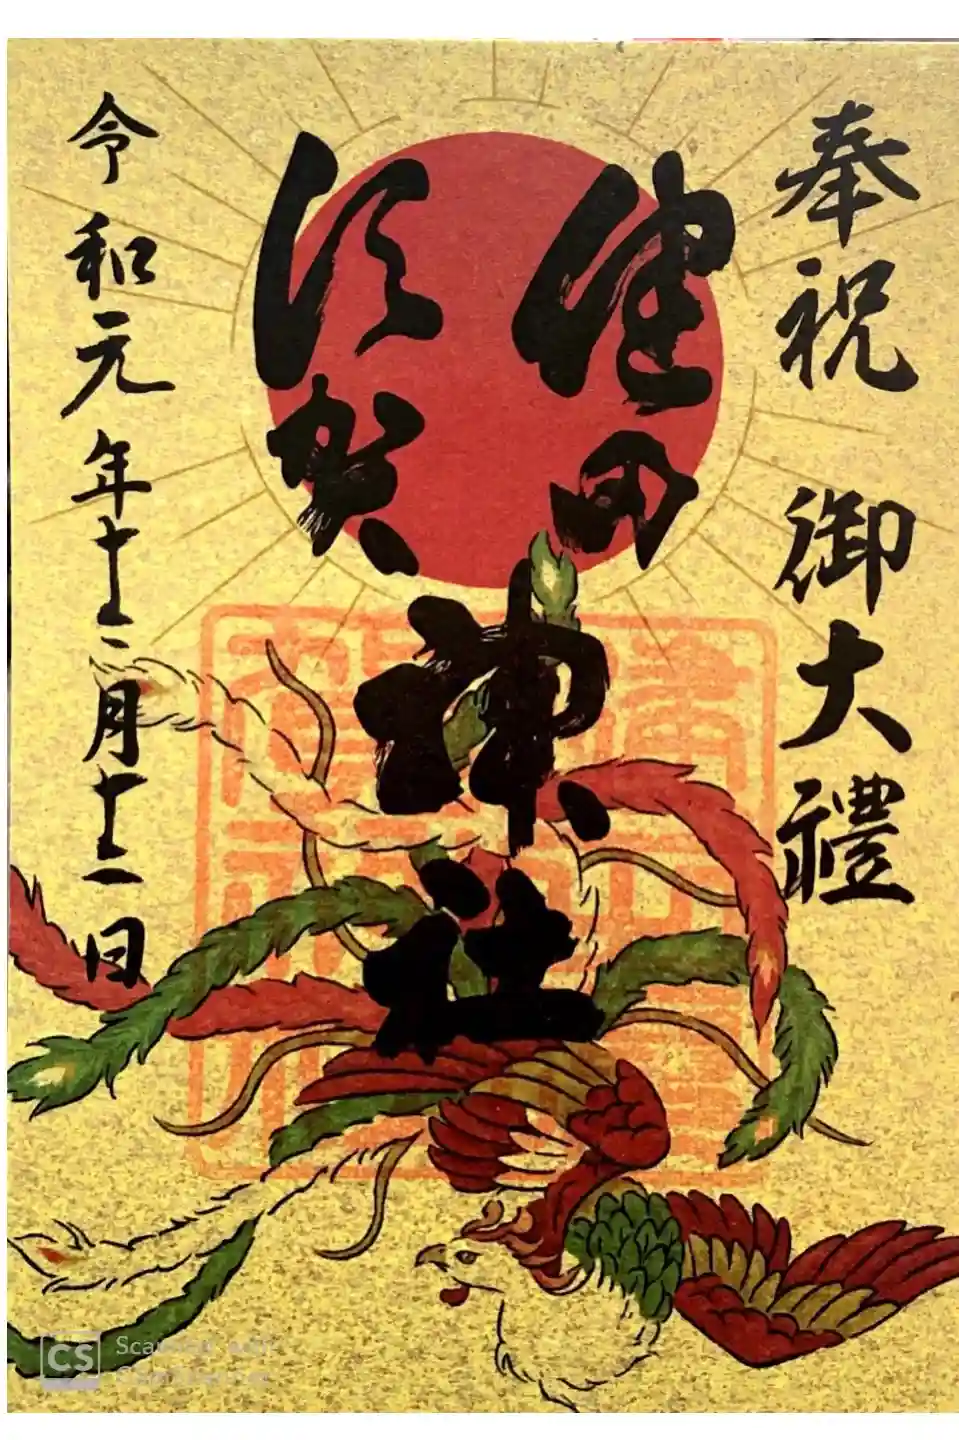 奉祝 御大禮
健田
須賀
神社
令和元年十二月十二日
CS
Scanned with
CamScanner